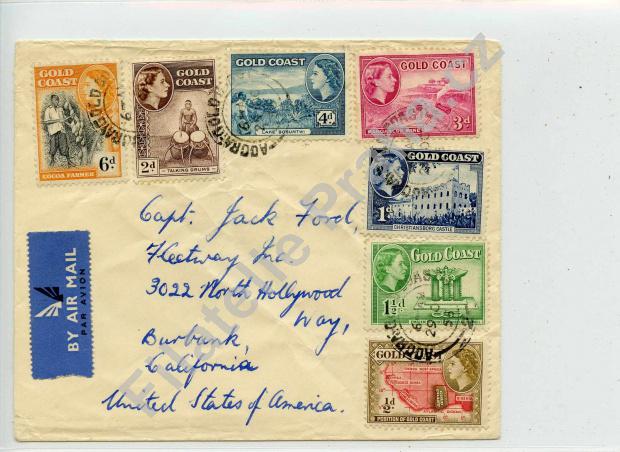 GOLD
COAST
6d
COCOA FARMER
GOLD
COAST
2d
TALKING DRUMS
GOLD COAST
4d
LAKE BOSUMTWI
GOLD COAST
3d
MANGANESE MINE
GOLD COAST
1d
CHRISTIANSBORG CASTLE
GOLD COAST
1½d
GOLD
½d
POSITION OF GOLD COAST
BY AIR MAIL
PAR AVION
Capt. Jack Ford,
Fleetway Inc.
3022 North Hollywood
Way,
Burbank,
California
United States of America.